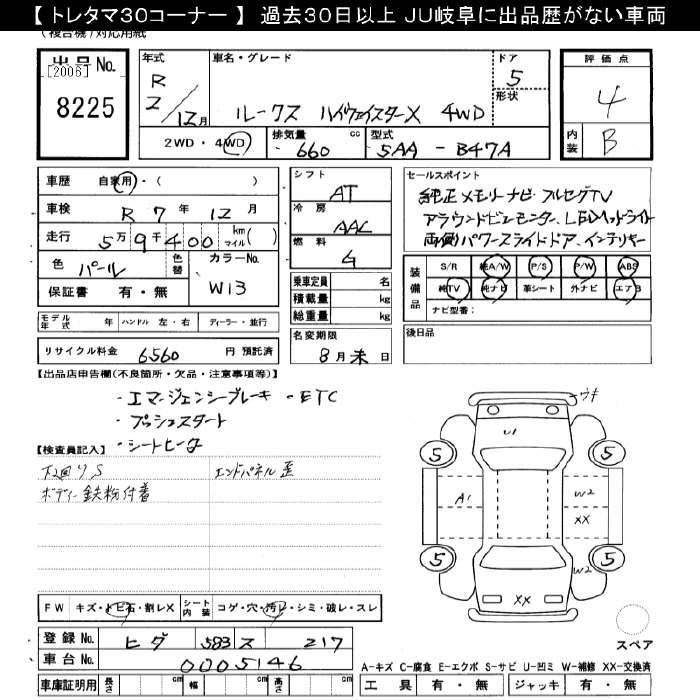 【 トレタマ30コーナー 】 過去30日以上 JU岐阜に出品歴がない車両
(複合機)対応用紙
出品No.
[2006]
8225
年式
R
2/12月
車名・グレード
ルークス ハイウェイスターX 4WD
ドア
5
形状
評価点
4
内装
B
2WD・4WD
排気量 cc
660
型式
5AA - B47A
車歴 自家用・( )
車検 R 7年 12月
走行 5万9千400 km マイル( )
色 パール 色替
カラーNo. W13
保証書 有・無
シフト
AT
冷房
AAC
燃料
G
セールスポイント
純正メモリナビ フルセグTV
アラウンドビューモニター、LEDヘッドライト
両側パワースライドドア、インテリキー
乗車定員 名
積載量 kg
総重量 kg
装備品
S/R 純A/W P/S P/W ABS
純TV 純ナビ 革シート 外ナビ エアB
ナビ型番:
モデル年式 年 ハンドル 左・右 ディーラー・並行
名変期限
8月末日
後日品
リサイクル料金 6560 円 預託済
【出品店申告欄(不良箇所・欠品・注意事項等)】
・エマージェンシーブレーキ ・ETC
・プッシュスタート
・シートヒータ
【検査員記入】
下廻りS
エンドパネル歪
ボディー鉄粉付着
ウキ
U1
5
5
A1
W2
XX
5
5
W2
XX
スペア
FW キズ・トビ石・割レX
シート内装 コゲ・穴・汚レ・シミ・破レ・スレ
登録No. ヒダ 583 ス 217
車台No. 0005146
A-キズ C-腐食 E-エクボ S-サビ U-凹ミ W-補修 XX-交換済
車庫証明用 長さ cm 幅 cm 高さ cm
工具 有・無 ジャッキ 有・無